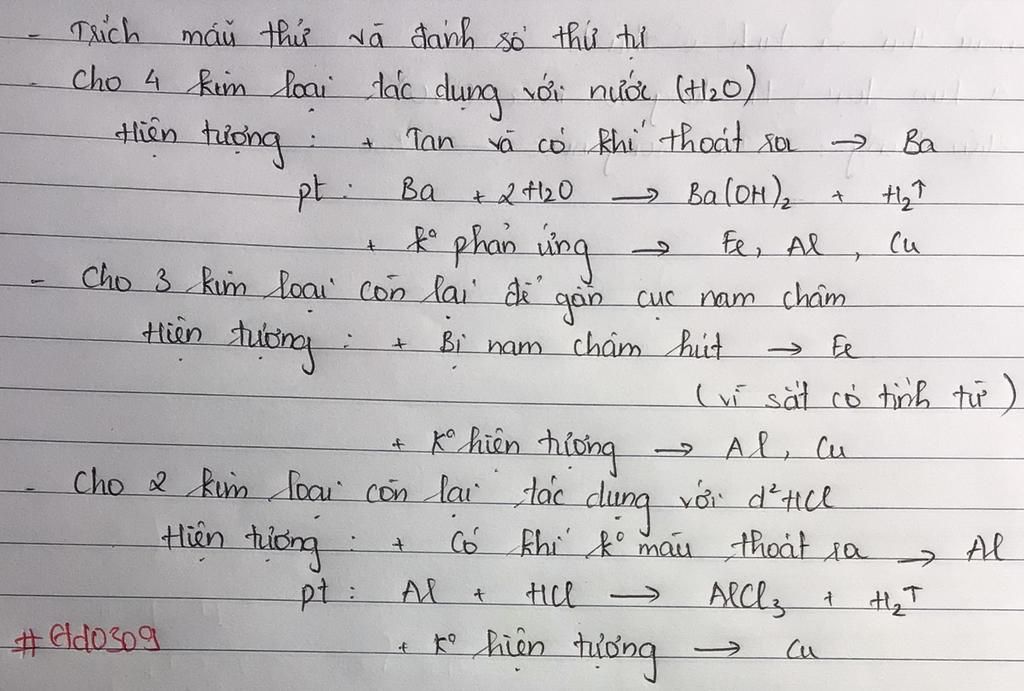 - Trích mẫu thử và đánh số thứ tự
- Cho 4 kim loại tác dụng với nước (H2O)
Hiện tượng : + Tan và có khí thoát ra → Ba
pt : Ba + 2H2O → Ba(OH)₂ + H₂↑
+ k° phản ứng → Fe, Al, Cu
- Cho 3 kim loại còn lại để gần cục nam châm
Hiện tượng : + Bị nam châm hút → Fe
(vì sắt có tính từ)
+ K° hiện tượng → Al, Cu
- Cho 2 kim loại còn lại tác dụng với d² HCl
Hiện tượng : + Có khí k° màu thoát ra → Al
pt : Al + HCl → AlCl₃ + H₂↑
+ K° hiện tượng → Cu